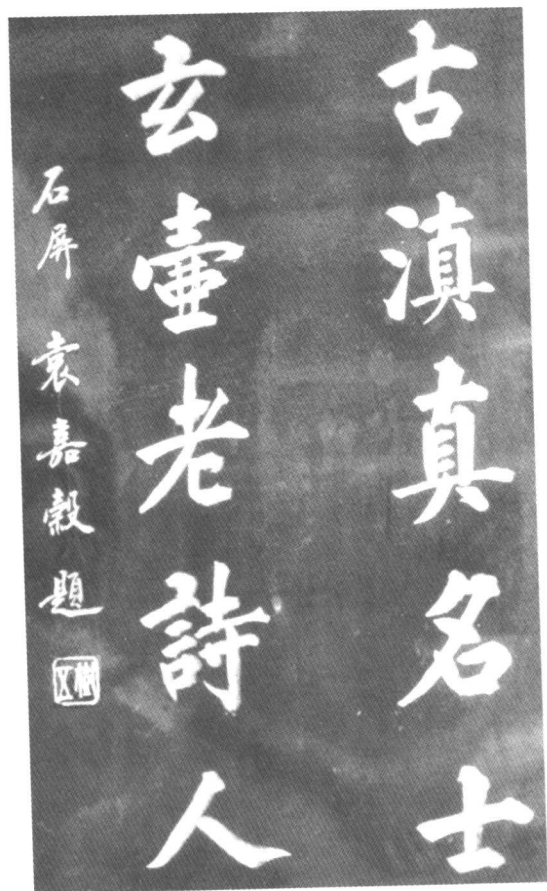 古滇真名士
玄壺老詩人
石屏 袁嘉穀題
樹五